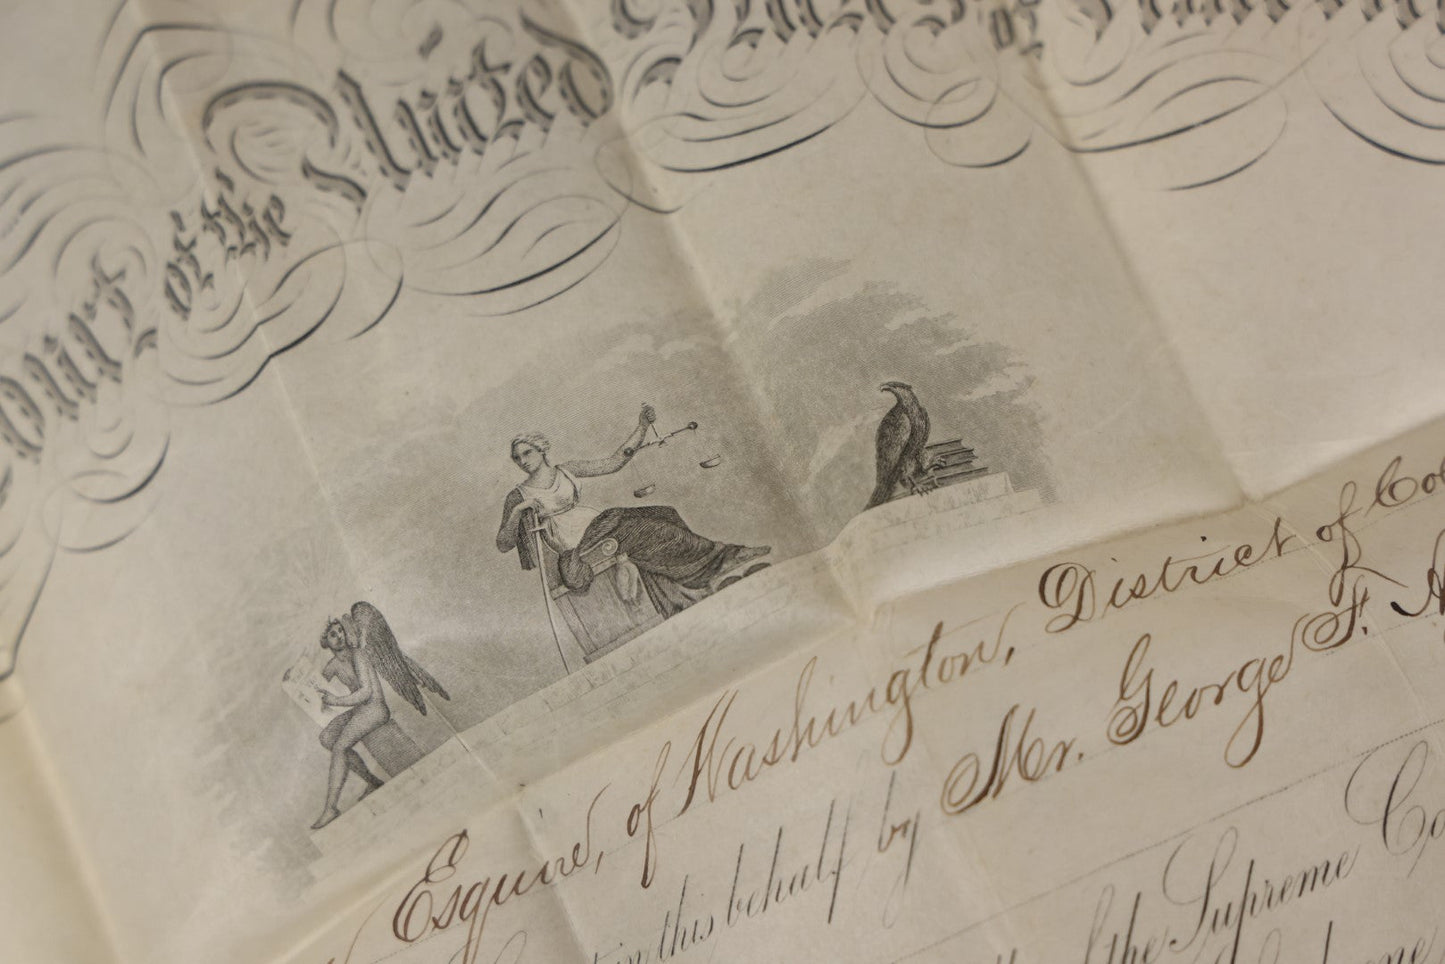 Court of the United States of America
Esquire, of Washington, District of Col
in this behalf by Mr. George F.
the Supreme Co